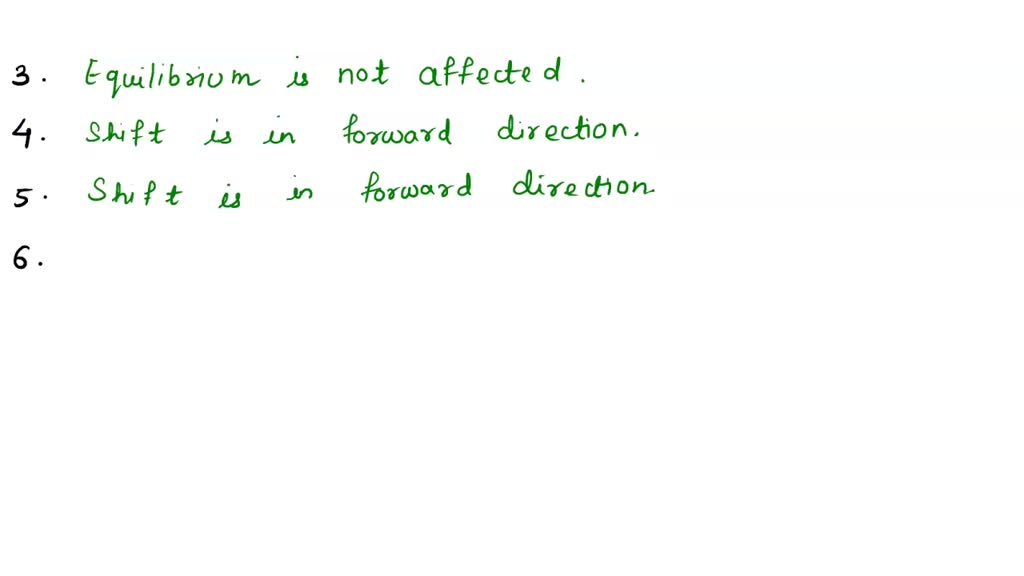 3. Equilibrium is not affected.
4. Shift is in forward direction.
5. Shift is in forward direction
6.